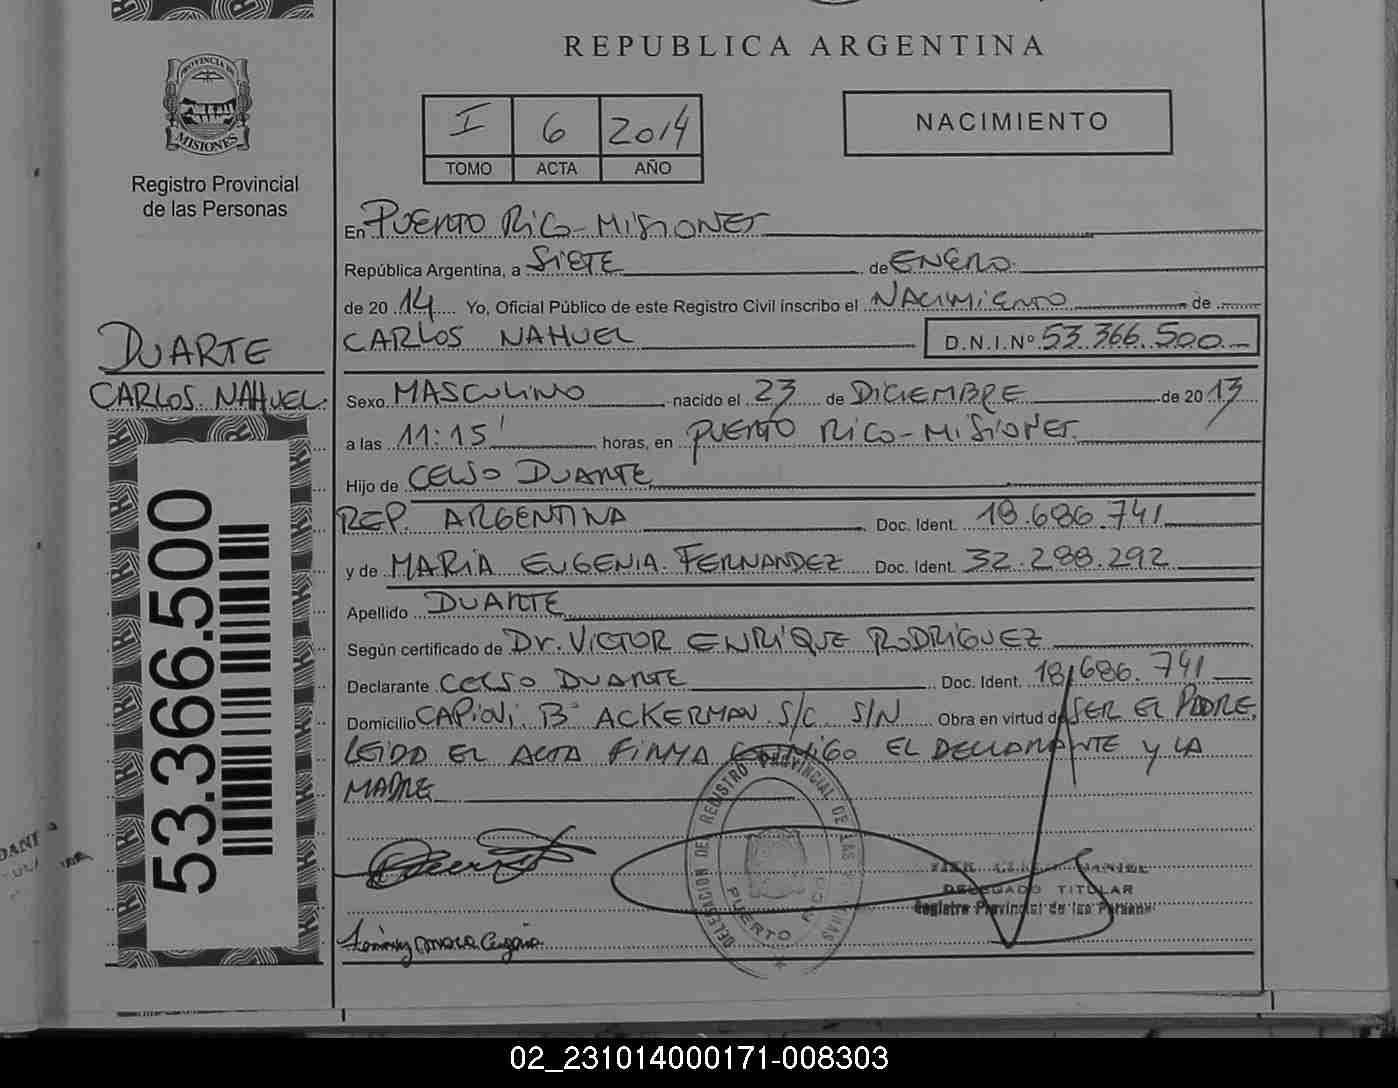 REPUBLICA ARGENTINA
PROVINCIA DE
MISIONES
Registro Provincial
de las Personas
I 6 2014
TOMO ACTA AÑO
NACIMIENTO
En PUERTO RICO - MISIONES
República Argentina, a SIETE de ENERO
de 20 14 Yo, Oficial Público de este Registro Civil inscribo el NACIMIENTO de
CARLOS NAHUEL D.N.I.Nº 53.366.500
DUARTE
CARLOS NAHUEL
Sexo MASCULINO nacido el 23 de DICIEMBRE de 20 13
a las 11:15' horas, en PUERTO RICO - MISIONES
Hijo de CELSO DUARTE
REP. ARGENTINA Doc. Ident. 18.686.741
y de MARIA EUGENIA FERNANDEZ Doc. Ident. 32.288.292
Apellido DUARTE
Según certificado de Dr. VICTOR ENRIQUE RODRIGUEZ
Declarante CELSO DUARTE Doc. Ident. 18.686.741
Domicilio CAPIOVI Bº ACKERMAN S/C S/N Obra en virtud de SER EL PADRE,
LEIDO EL ACTA FIRMA CONMIGO EL DECLARANTE Y LA
MADRE
53.366.500
DELEGACION DEL REGISTRO PROVINCIAL DE LAS PERSONAS
PUERTO RICO
DANIEL
DELEGADO TITULAR
Registro Provincial de las Personas
02_231014000171-008303